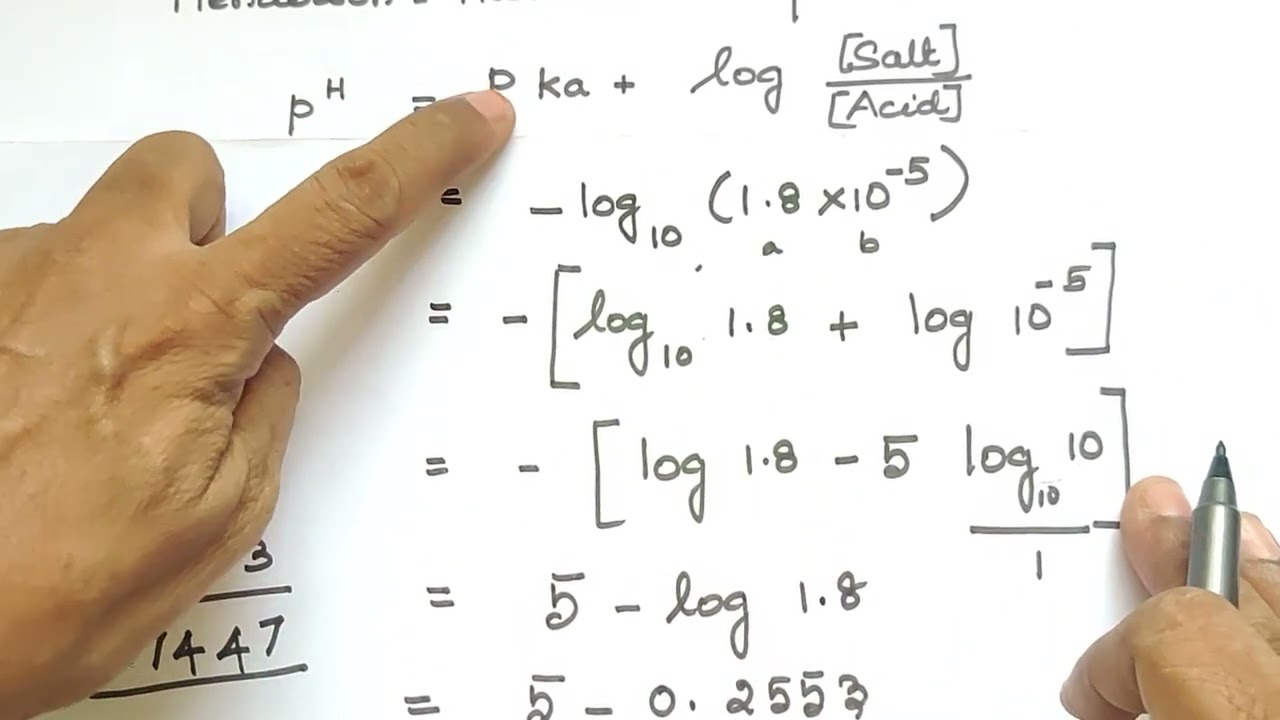 pH = P ka + log [Salt]/[Acid]
= - log10 (1.8 × 10^-5)
a b
= - [log10 1.8 + log 10^-5]
= - [log 1.8 - 5 log10 10]
1
= 5 - log 1.8
3
1447
= 5 - 0.2553